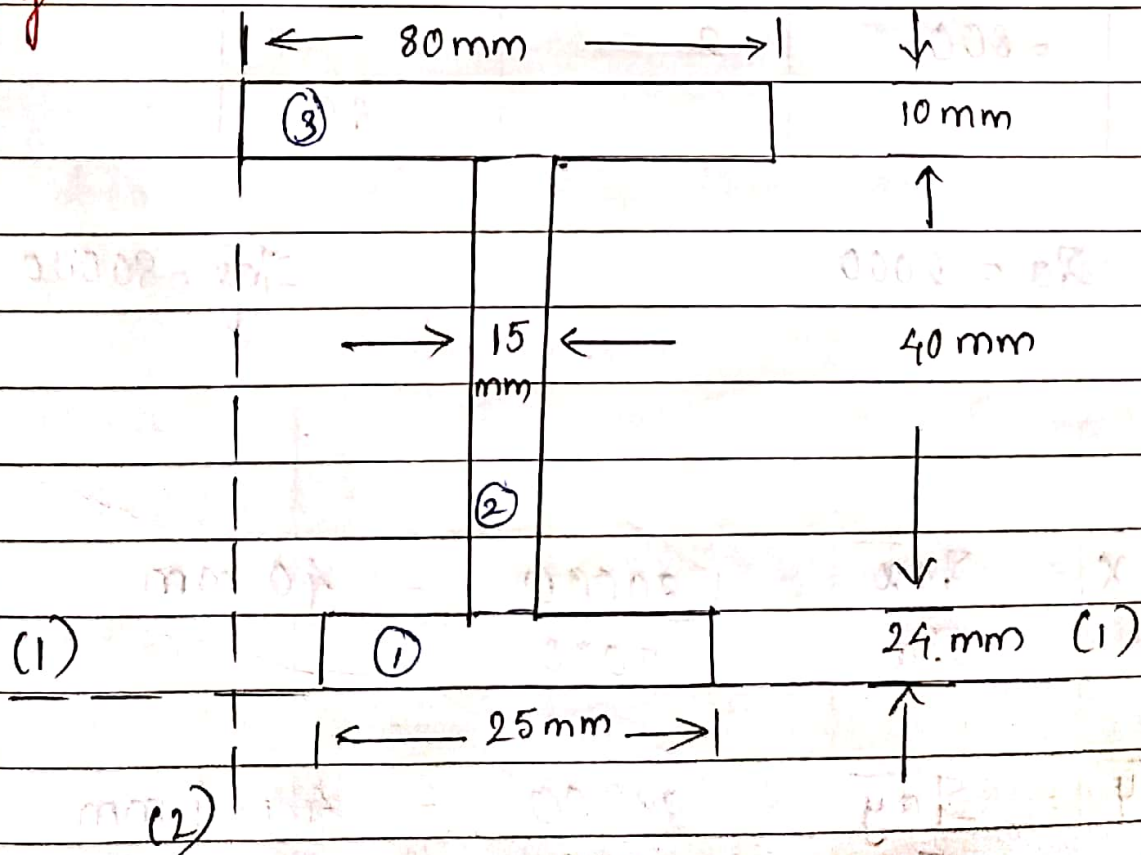 80 mm
③
10 mm
15
mm
40 mm
②
(1)
①
24 mm (1)
25 mm
(2)